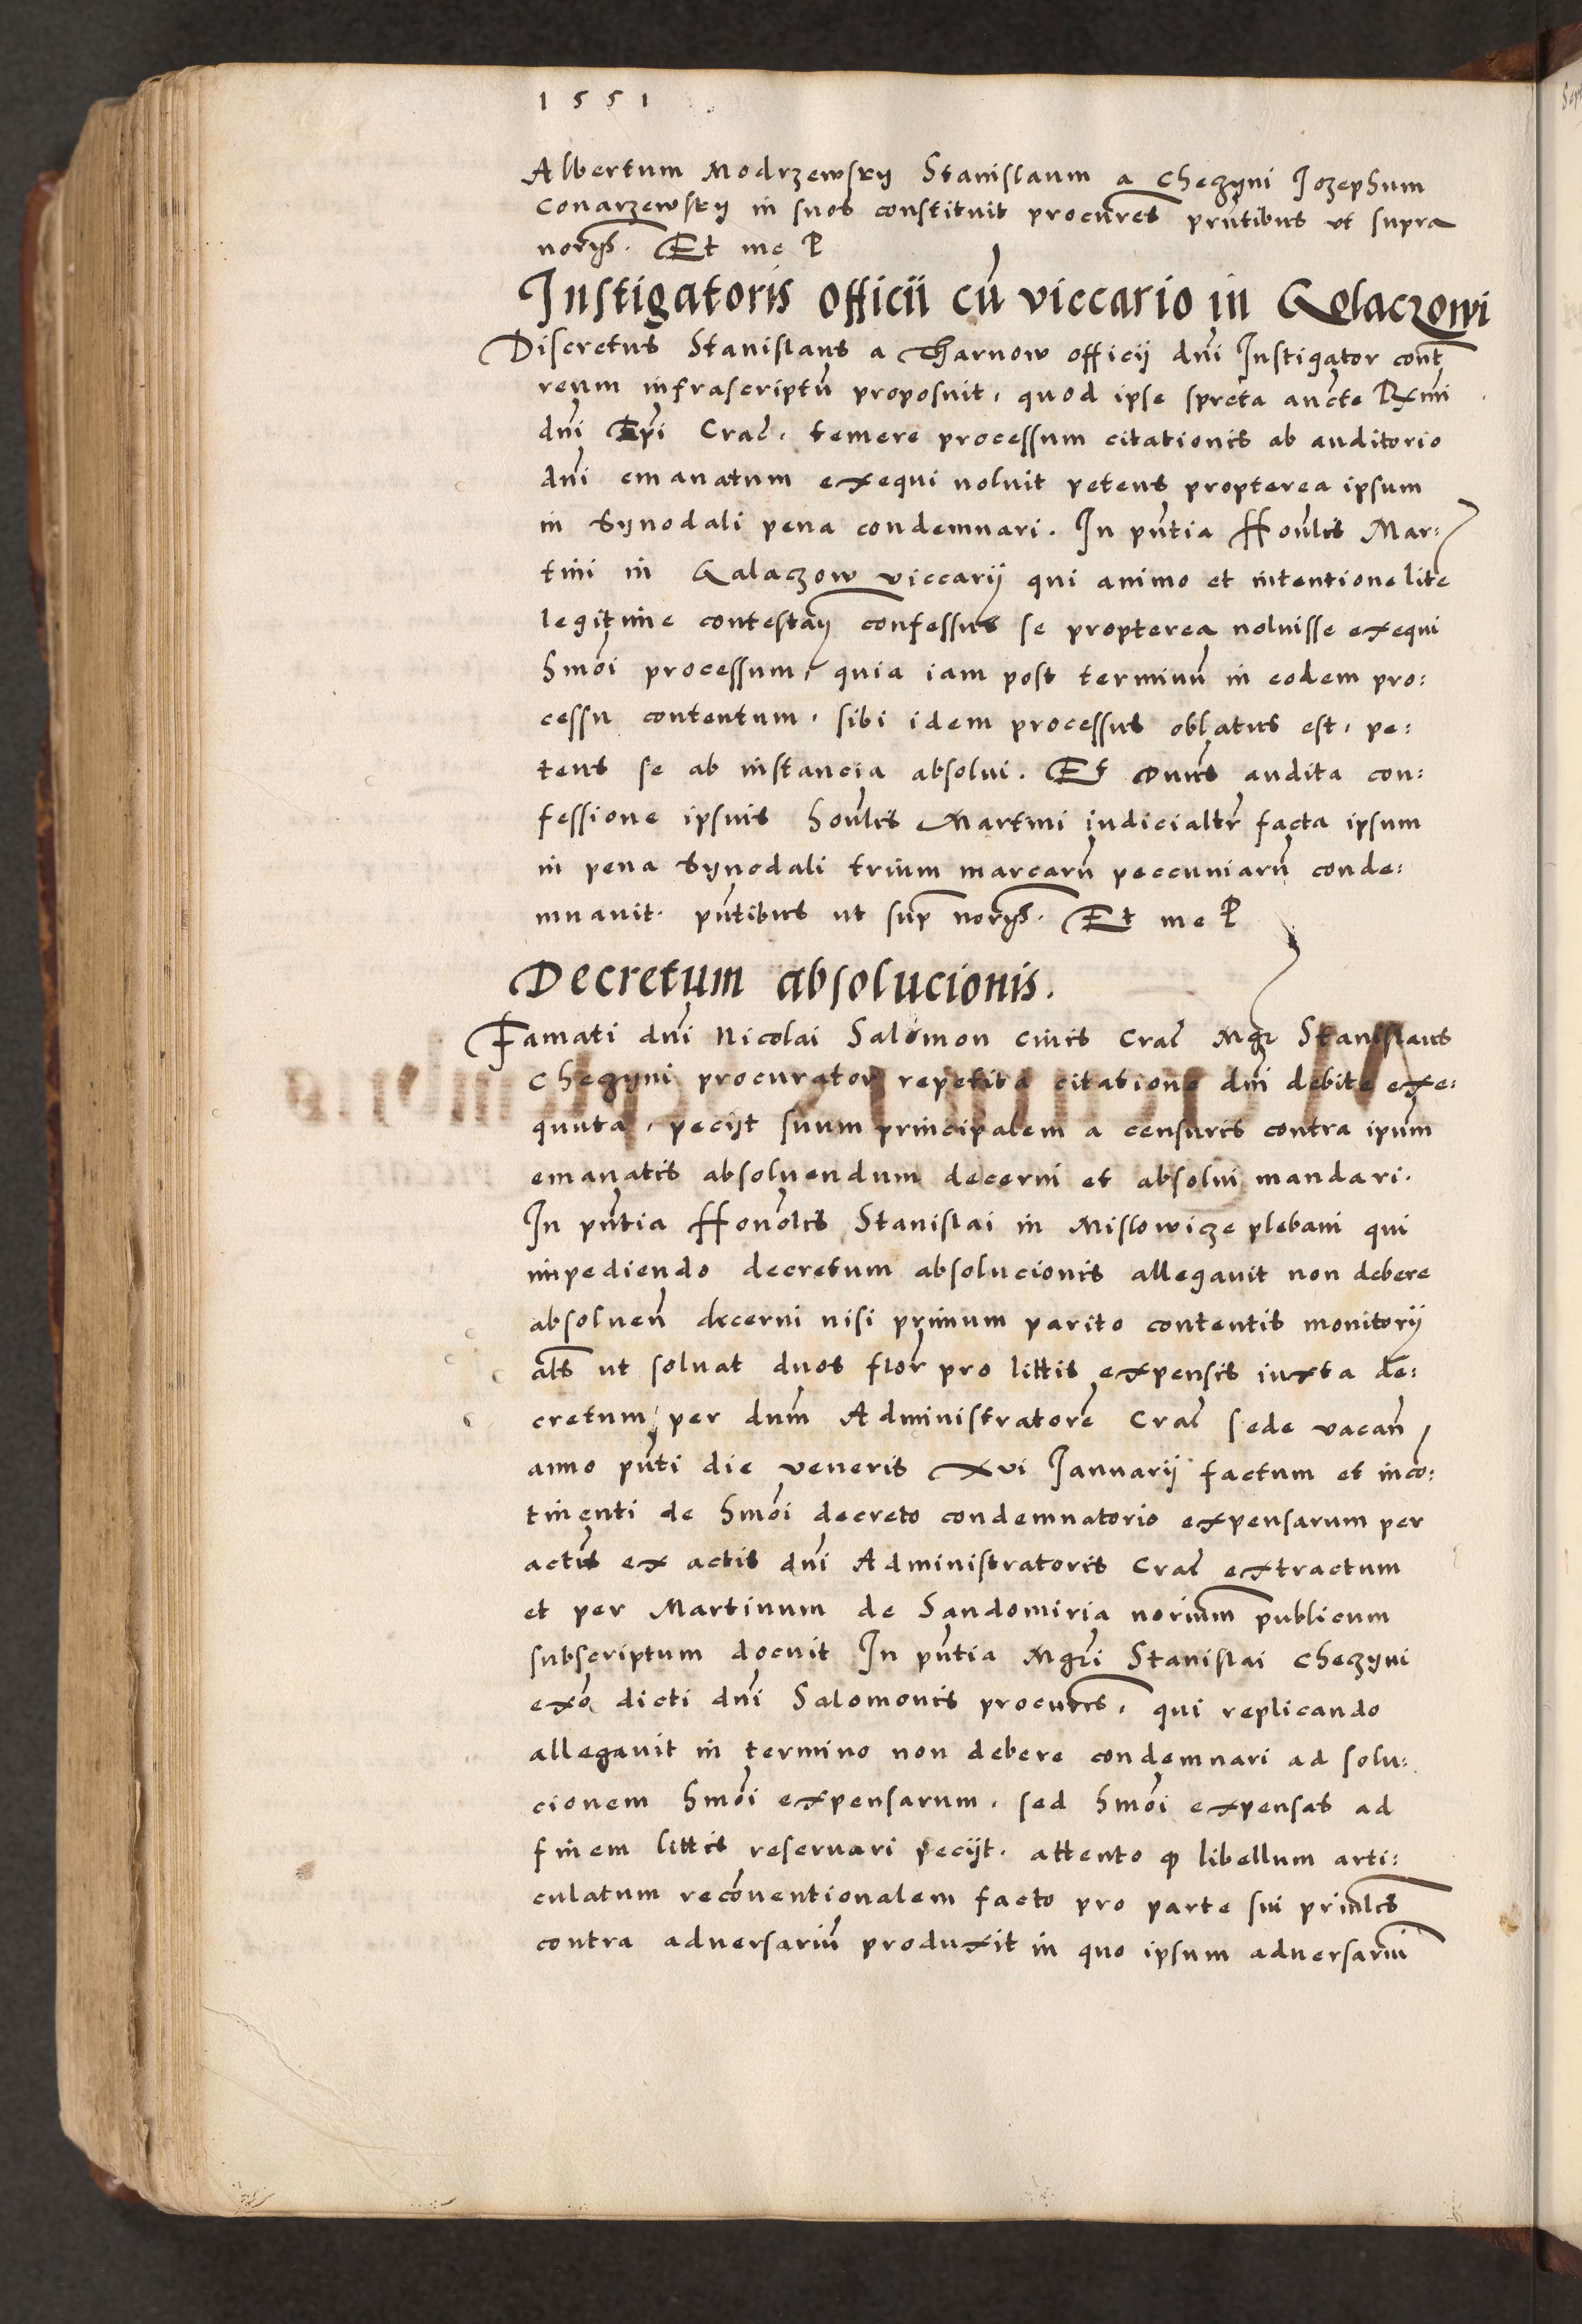 1551
Albertum Modrzewsky Stanislaum a Chezyni Jozephum
Conarzewsky in suos constituit procures pñtibus vt supra
norys. Et me P
Instigatoris officii cũ viccario in Golaczowi
Discretus Stanislaus a Tharnow officij dni Instigator cont
reum infrascriptũ proposuit, quod ipse spreta aucte Rxmi
dni Epi Crac. temere processum citationis ab auditorio
dni emanatum exequi noluit petens propterea ipsum
in synodali pena condemnari. In pñtia Honlis Mar:
tini in Galaczow viccarij qui animo et intentione lite
legitime contestay confessus se propterea noluisse exequi
hmõi processum, quia iam post terminũ in eodem pro:
cessu contentum, sibi idem processus oblatus est, pe:
tens se ab instancia absolui. Et Dnus audita con:
fessione ipsius honlis Martini iudicialtr facta ipsum
in pena synodali trium marcarũ peccuniarũ conde:
mnauit. pñtibus ut sup norys. Et me P
Decretum absolucionis.
Famati dni Nicolai Salomon ciuis Crac Mgr Stanislaus
Chezyni procurator repetita citatione dni debite exe:
quuta, pecijt suum principalem a censuris contra ipum
emanatis absoluendum decerni et absolui mandari.
In pñtia Honolis Stanislai in Mislowicze plebani qui
impediendo decretum absolucionis allegauit non debere
absoluen decerni nisi primum parito contentis monitorij
als ut soluat duos flor pro littis expensis iuxta de:
cretum per dum Administratorẽ Crac sede vacan
anno pñti die veneris xvi Januarij factum et inco:
tinenti de hmõi decreto condemnatorio expensarum per
actus ex actis dni Administratoris Crac extractum
et per Martinum de Sandomiria norium publicum
subscriptum docuit In pñtia Mgri Stanislai Chezyni
exõ dicti dni Salomonis procuris, qui replicando
allegauit in termino non debere condemnari ad solu:
cionem hmõi expensarum, sed hmõi expensas ad
finem littis reseruari pecijt. attento q libellum arti:
culatum reconuentionalem facto pro parte sui prinlis
contra aduersariũ produxit in quo ipsum aduersariũ